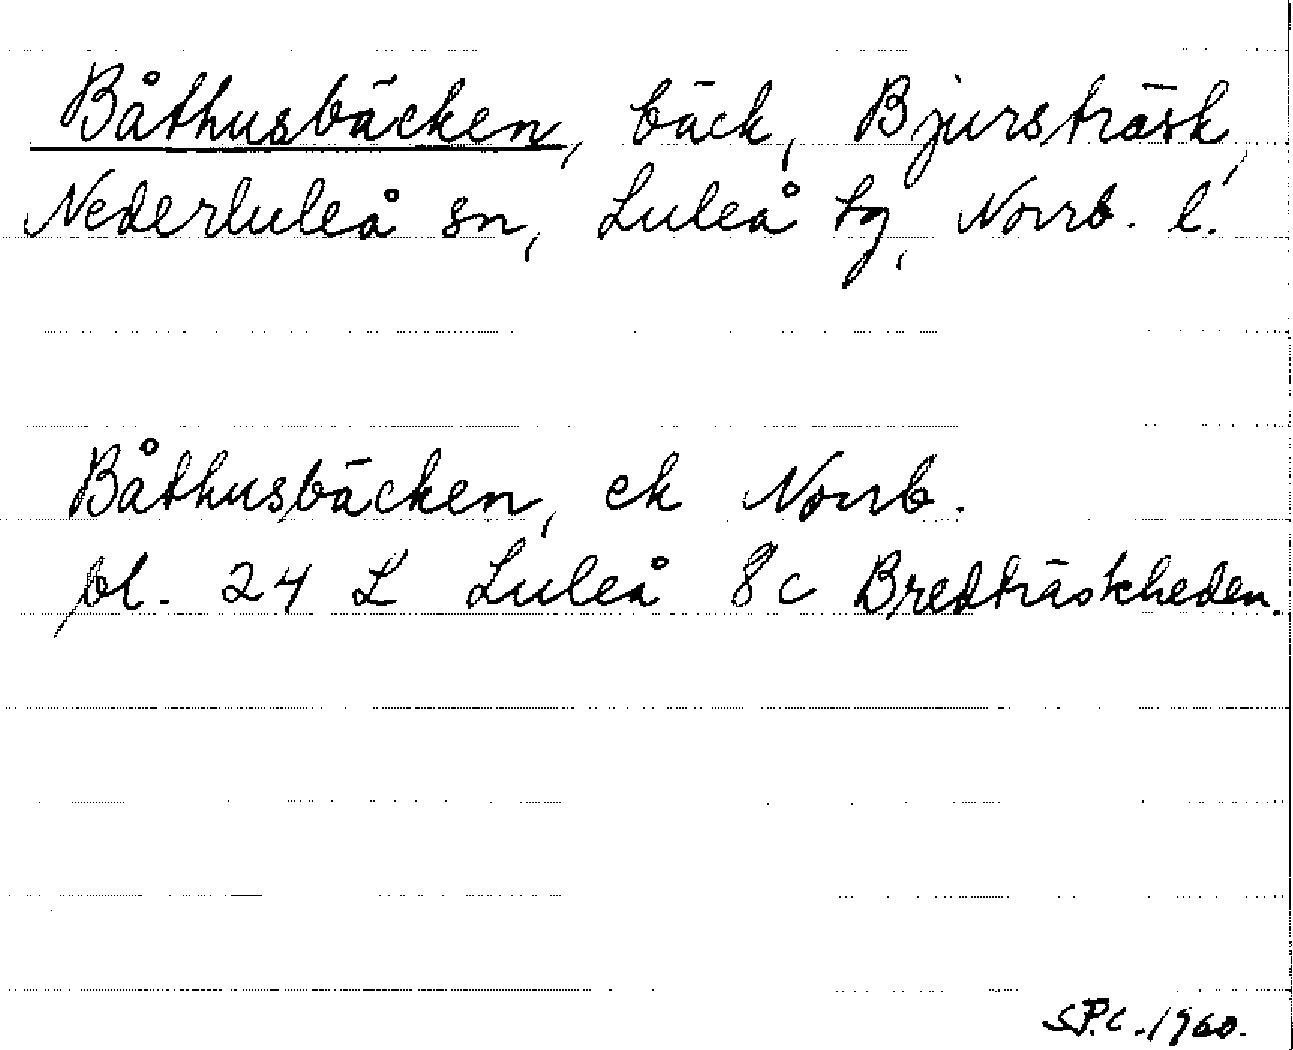 Båthusbäcken, bäck, Bjursträsk,
Nederluleå sn, Luleå tg, Norrb. l.
Båthusbäcken, ek Norrb.
bl. 24 L Luleå 8c Bredträskheden.
S.P.C. 1960.